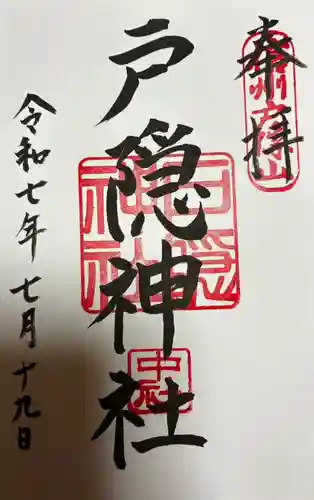 奉拝
戸隠神社
令和七年七月十九日
戸隠
神社
中社